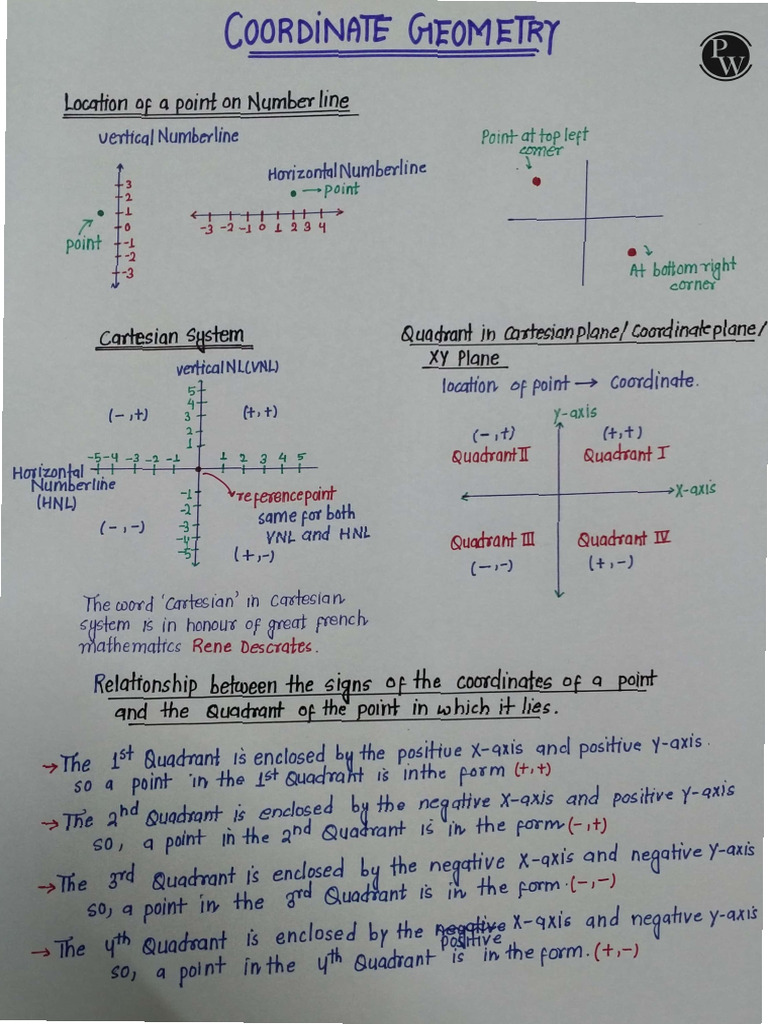 COORDINATE GEOMETRY
PW
Location of a point on Number line
vertical Numberline
3
2
1
0
-1
-2
-3
point
Horizontal Numberline
point
-3 -2 -1 0 1 2 3 4
Point at top left
corner
At bottom right
corner
Cartesian System
vertical NL(VNL)
5
4
3
2
1
(-,+)
(+,+)
-5 -4 -3 -2 -1
1 2 3 4 5
Horizontal
Numberline
(HNL)
-1
-2
-3
-4
-5
reference point
same for both
VNL and HNL
(-,-)
(+,-)
The word 'Cartesian' in Cartesian
system is in honour of great french
mathematics Rene Descrates.
Quadrant in Cartesian plane/Coordinate plane/
XY Plane
location of point → Coordinate.
y-axis
(-,+)
(+,+)
Quadrant II
Quadrant I
X-axis
Quadrant III
Quadrant IV
(-,-)
(+,-)
Relationship between the signs of the coordinates of a point
and the Quadrant of the point in which it lies.
→ The 1st Quadrant is enclosed by the positive X-axis and positive y-axis.
so a point in the 1st Quadrant is in the form (+,+)
→ The 2nd Quadrant is enclosed by the negative X-axis and positive y-axis
so, a point in the 2nd Quadrant is in the form (-,+)
→ The 3rd Quadrant is enclosed by the negative X-axis and negative y-axis
so, a point in the 3rd Quadrant is in the form. (-,-)
→ The 4th Quadrant is enclosed by the negative X-axis and negative y-axis
positive
so, a point in the 4th Quadrant is in the form. (+,-)